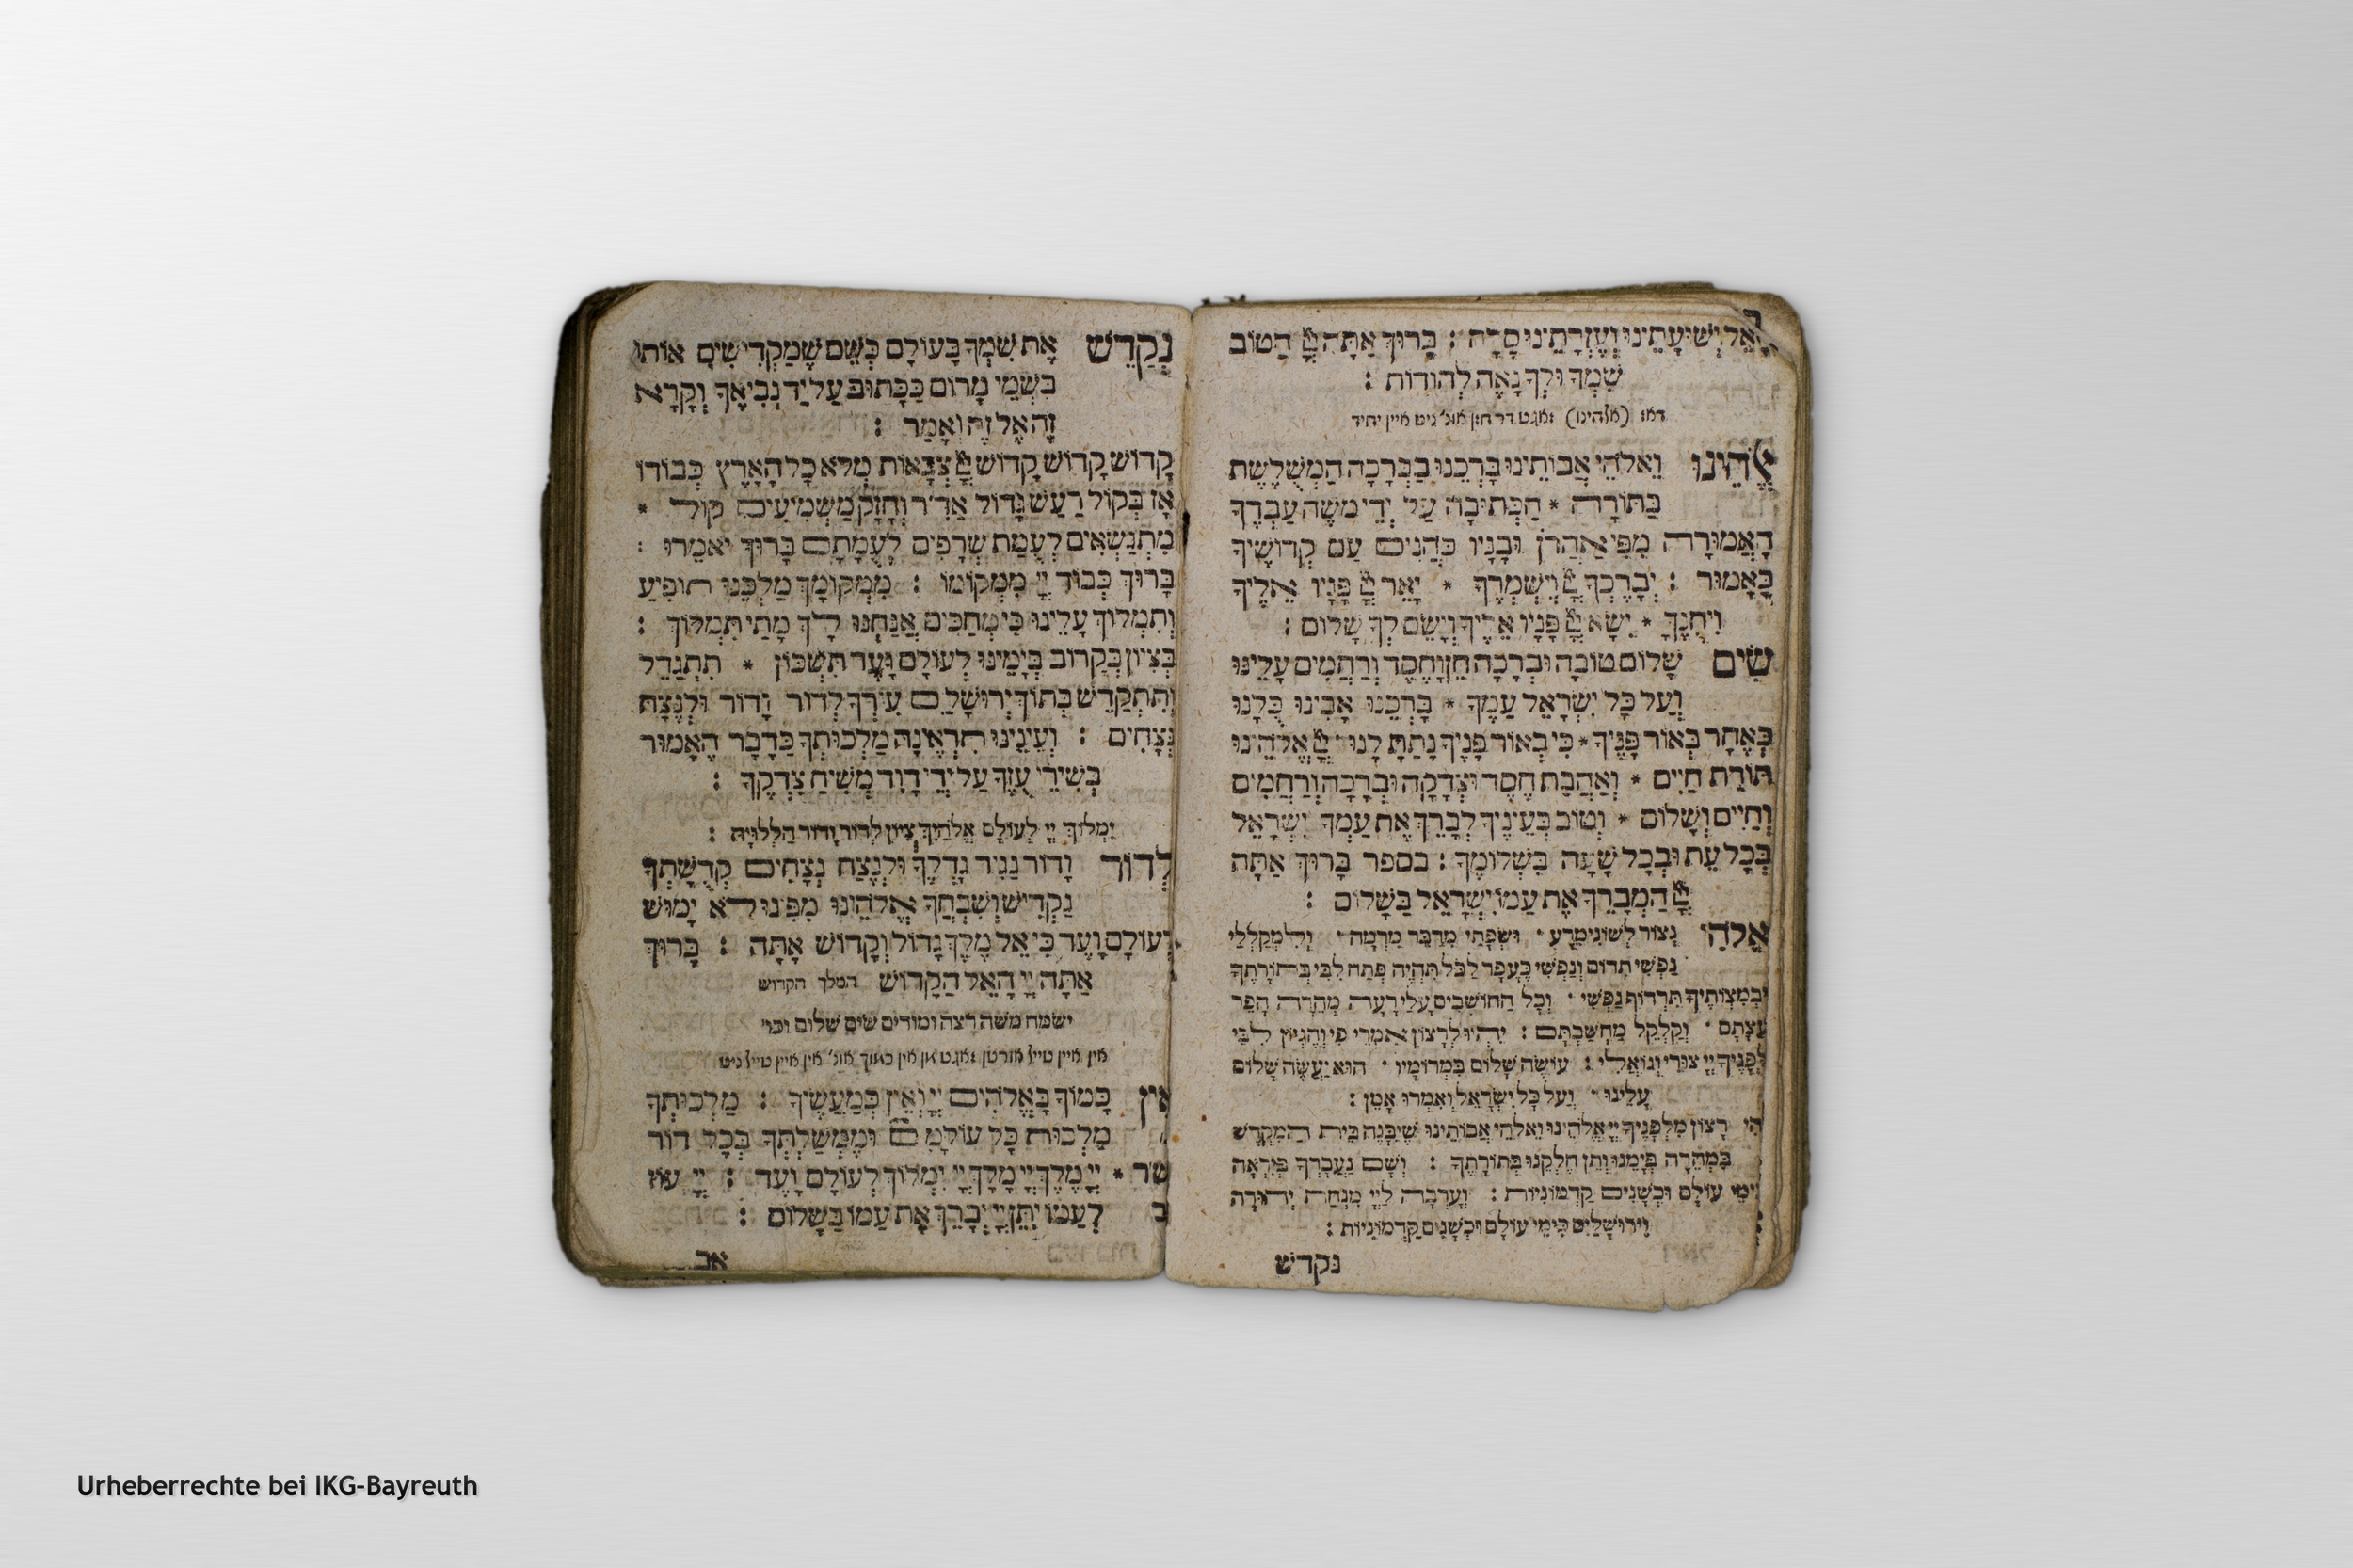 הָאֵל יְשׁוּעָתֵינוּ וְעֶזְרָתֵינוּ סֶלָה : בָּרוּךְ אַתָּה יְיָ הַטּוֹב
שִׁמְךָ וּלְךָ נָאֶה לְהוֹדוֹת :
דאז (אלהינו) זאגט דר חזן אונ׳ ניט איין יחיד
אֱלֹהֵינוּ וֵאלֹהֵי אֲבוֹתֵינוּ בָּרְכֵנוּ בַבְּרָכָה הַמְשֻׁלֶּשֶׁת
בַּתּוֹרָה * הַכְּתוּבָה עַל יְדֵי מֹשֶׁה עַבְדֶּךָ
הָאֲמוּרָה מִפִּי אַהֲרֹן וּבָנָיו כֹּהֲנִים עַם קְדוֹשֶׁיךָ
כָּאָמוּר : יְבָרֶכְךָ יְיָ וְיִשְׁמְרֶךָ * יָאֵר יְיָ פָּנָיו אֵלֶיךָ
וִיחֻנֶּךָּ * יִשָּׂא יְיָ פָּנָיו אֵלֶיךָ וְיָשֵׂם לְךָ שָׁלוֹם :
שִׂים שָׁלוֹם טוֹבָה וּבְרָכָה חֵן וָחֶסֶד וְרַחֲמִים עָלֵינוּ
וְעַל כָּל יִשְׂרָאֵל עַמֶּךָ * בָּרְכֵנוּ אָבִינוּ כֻּלָּנוּ
כְּאֶחָד בְּאוֹר פָּנֶיךָ * כִּי בְאוֹר פָּנֶיךָ נָתַתָּ לָנוּ יְיָ אֱלֹהֵינוּ
תּוֹרַת חַיִּים * וְאַהֲבַת חֶסֶד וּצְדָקָה וּבְרָכָה וְרַחֲמִים
וְחַיִּים וְשָׁלוֹם * וְטוֹב בְּעֵינֶיךָ לְבָרֵךְ אֶת עַמְּךָ יִשְׂרָאֵל
בְּכָל עֵת וּבְכָל שָׁעָה בִּשְׁלוֹמֶךָ : בספר בָּרוּךְ אַתָּה
יְיָ הַמְבָרֵךְ אֶת עַמּוֹ יִשְׂרָאֵל בַּשָּׁלוֹם :
אֱלֹהַי נְצוֹר לְשׁוֹנִי מֵרָע · וּשְׂפָתַי מִדַּבֵּר מִרְמָה · וְלִמְקַלְלַי
נַפְשִׁי תִדּוֹם וְנַפְשִׁי כֶּעָפָר לַכֹּל תִּהְיֶה פְּתַח לִבִּי בְּתוֹרָתֶךָ
וּבְמִצְוֹתֶיךָ תִּרְדּוֹף נַפְשִׁי · וְכָל הַחוֹשְׁבִים עָלַי רָעָה מְהֵרָה הָפֵר
עֲצָתָם · וְקַלְקֵל מַחֲשַׁבְתָּם : יִהְיוּ לְרָצוֹן אִמְרֵי פִי וְהֶגְיוֹן לִבִּי
לְפָנֶיךָ יְיָ צוּרִי וְגוֹאֲלִי : עוֹשֶׂה שָׁלוֹם בִּמְרוֹמָיו · הוּא יַעֲשֶׂה שָׁלוֹם
עָלֵינוּ · וְעַל כָּל יִשְׂרָאֵל וְאִמְרוּ אָמֵן :
רָצוֹן מִלְּפָנֶיךָ יְיָ אֱלֹהֵינוּ וֵאלֹהֵי אֲבוֹתֵינוּ שֶׁיִּבָּנֶה בֵּית הַמִּקְדָּשׁ
בִּמְהֵרָה בְּיָמֵנוּ וְתֵן חֶלְקֵנוּ בְּתוֹרָתֶךָ : וְשָׁם נַעֲבָדְךָ בְּיִרְאָה
כִּימֵי עוֹלָם וּכְשָׁנִים קַדְמוֹנִיוֹת : וְעָרְבָה לַיְיָ מִנְחַת יְהוּדָה
וִירוּשָׁלַיִם כִּימֵי עוֹלָם וּכְשָׁנִים קַדְמוֹנִיוֹת :
נקדש
נְקַדֵּשׁ אֶת שִׁמְךָ בָּעוֹלָם כְּשֵׁם שֶׁמַּקְדִּישִׁים אוֹתוֹ
בִּשְׁמֵי מָרוֹם כַּכָּתוּב עַל יַד נְבִיאֶךָ וְקָרָא
זֶה אֶל זֶה וְאָמַר :
קָדוֹשׁ קָדוֹשׁ קָדוֹשׁ יְיָ צְבָאוֹת מְלֹא כָל הָאָרֶץ כְּבוֹדוֹ
אָז בְּקוֹל רַעַשׁ גָּדוֹל אַדִּיר וְחָזָק מַשְׁמִיעִים קוֹל *
מִתְנַשְּׂאִים לְעֻמַּת שְׂרָפִים לְעֻמָּתָם בָּרוּךְ יֹאמֵרוּ :
בָּרוּךְ כְּבוֹד יְיָ מִמְּקוֹמוֹ : מִמְּקוֹמְךָ מַלְכֵּנוּ תוֹפִיעַ
וְתִמְלוֹךְ עָלֵינוּ כִּי מְחַכִּים אֲנַחְנוּ לָךְ מָתַי תִּמְלוֹךְ :
בְּצִיּוֹן בְּקָרוֹב בְּיָמֵינוּ לְעוֹלָם וָעֶד תִּשְׁכּוֹן * תִּתְגַּדַּל
וְתִתְקַדֵּשׁ בְּתוֹךְ יְרוּשָׁלַיִם עִירְךָ לְדוֹר וָדוֹר וּלְנֵצַח
נְצָחִים : וְעֵינֵינוּ תִרְאֶינָה מַלְכוּתֶךָ כַּדָּבָר הָאָמוּר
בְּשִׁירֵי עֻזֶּךָ עַל יְדֵי דָוִד מְשִׁיחַ צִדְקֶךָ :
יִמְלוֹךְ יְיָ לְעוֹלָם אֱלֹהַיִךְ צִיּוֹן לְדוֹר וָדוֹר הַלְלוּיָהּ :
לְדוֹר וָדוֹר נַגִּיד גָּדְלֶךָ וּלְנֵצַח נְצָחִים קְדֻשָּׁתְךָ
נַקְדִּישׁ וְשִׁבְחֲךָ אֱלֹהֵינוּ מִפִּינוּ לֹא יָמוּשׁ
לְעוֹלָם וָעֶד כִּי אֵל מֶלֶךְ גָּדוֹל וְקָדוֹשׁ אָתָּה : בָּרוּךְ
אַתָּה יְיָ הָאֵל הַקָּדוֹשׁ המלך הקדוש
ישמח משה רצה ומודים שים שלום וכו׳
אין איין טייל אורטן זאגט מן אין כמוך אונ׳ אין איין טייל ניט
אֵין כָּמוֹךָ בָאֱלֹהִים יְיָ וְאֵין כְּמַעֲשֶׂיךָ : מַלְכוּתְךָ
מַלְכוּת כָּל עוֹלָמִים וּמֶמְשַׁלְתְּךָ בְּכָל דּוֹר
* יְיָ מֶלֶךְ יְיָ מָלָךְ יְיָ יִמְלוֹךְ לְעוֹלָם וָעֶד : יְיָ עוֹז
לְעַמּוֹ יִתֵּן יְיָ יְבָרֵךְ אֶת עַמּוֹ בַשָּׁלוֹם :
אב
Urheberrechte bei IKG-Bayreuth